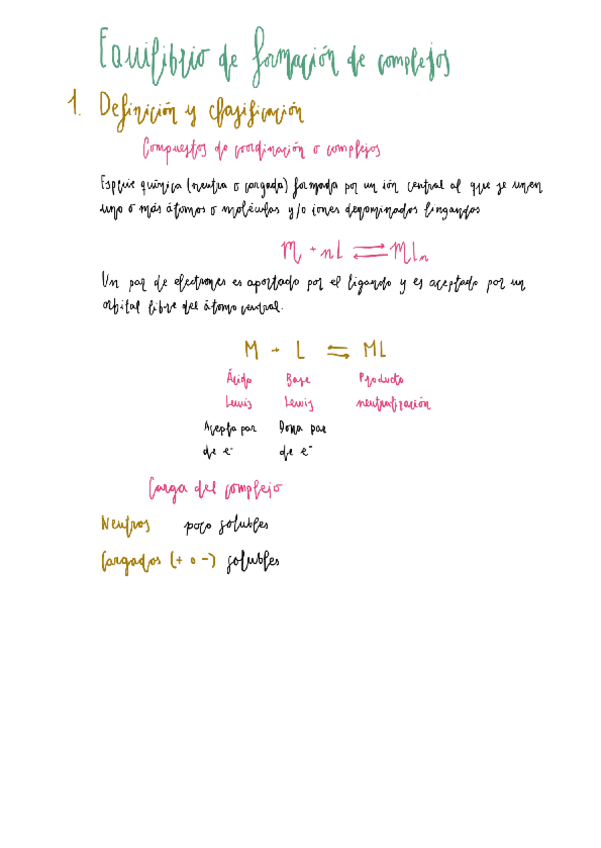 Equilibrio de formación de complejos
1. Definición y clasificación
Compuestos de coordinación o complejos
Especie química (neutra o cargada) formada por un ión central al que se unen
uno o más átomos o moléculas y/o iones denominados lingandos
M + nL ⇌ MLn
Un par de electrones es aportado por el ligando y es aceptado por un
orbital libre del átomo central.
M + L ⇌ ML
Ácido Base Producto
Lewis Lewis neutralización
Acepta par Dona par
de e⁻ de e⁻
Carga del complejo
Neutros poco solubles
Cargados (+ o -) solubles